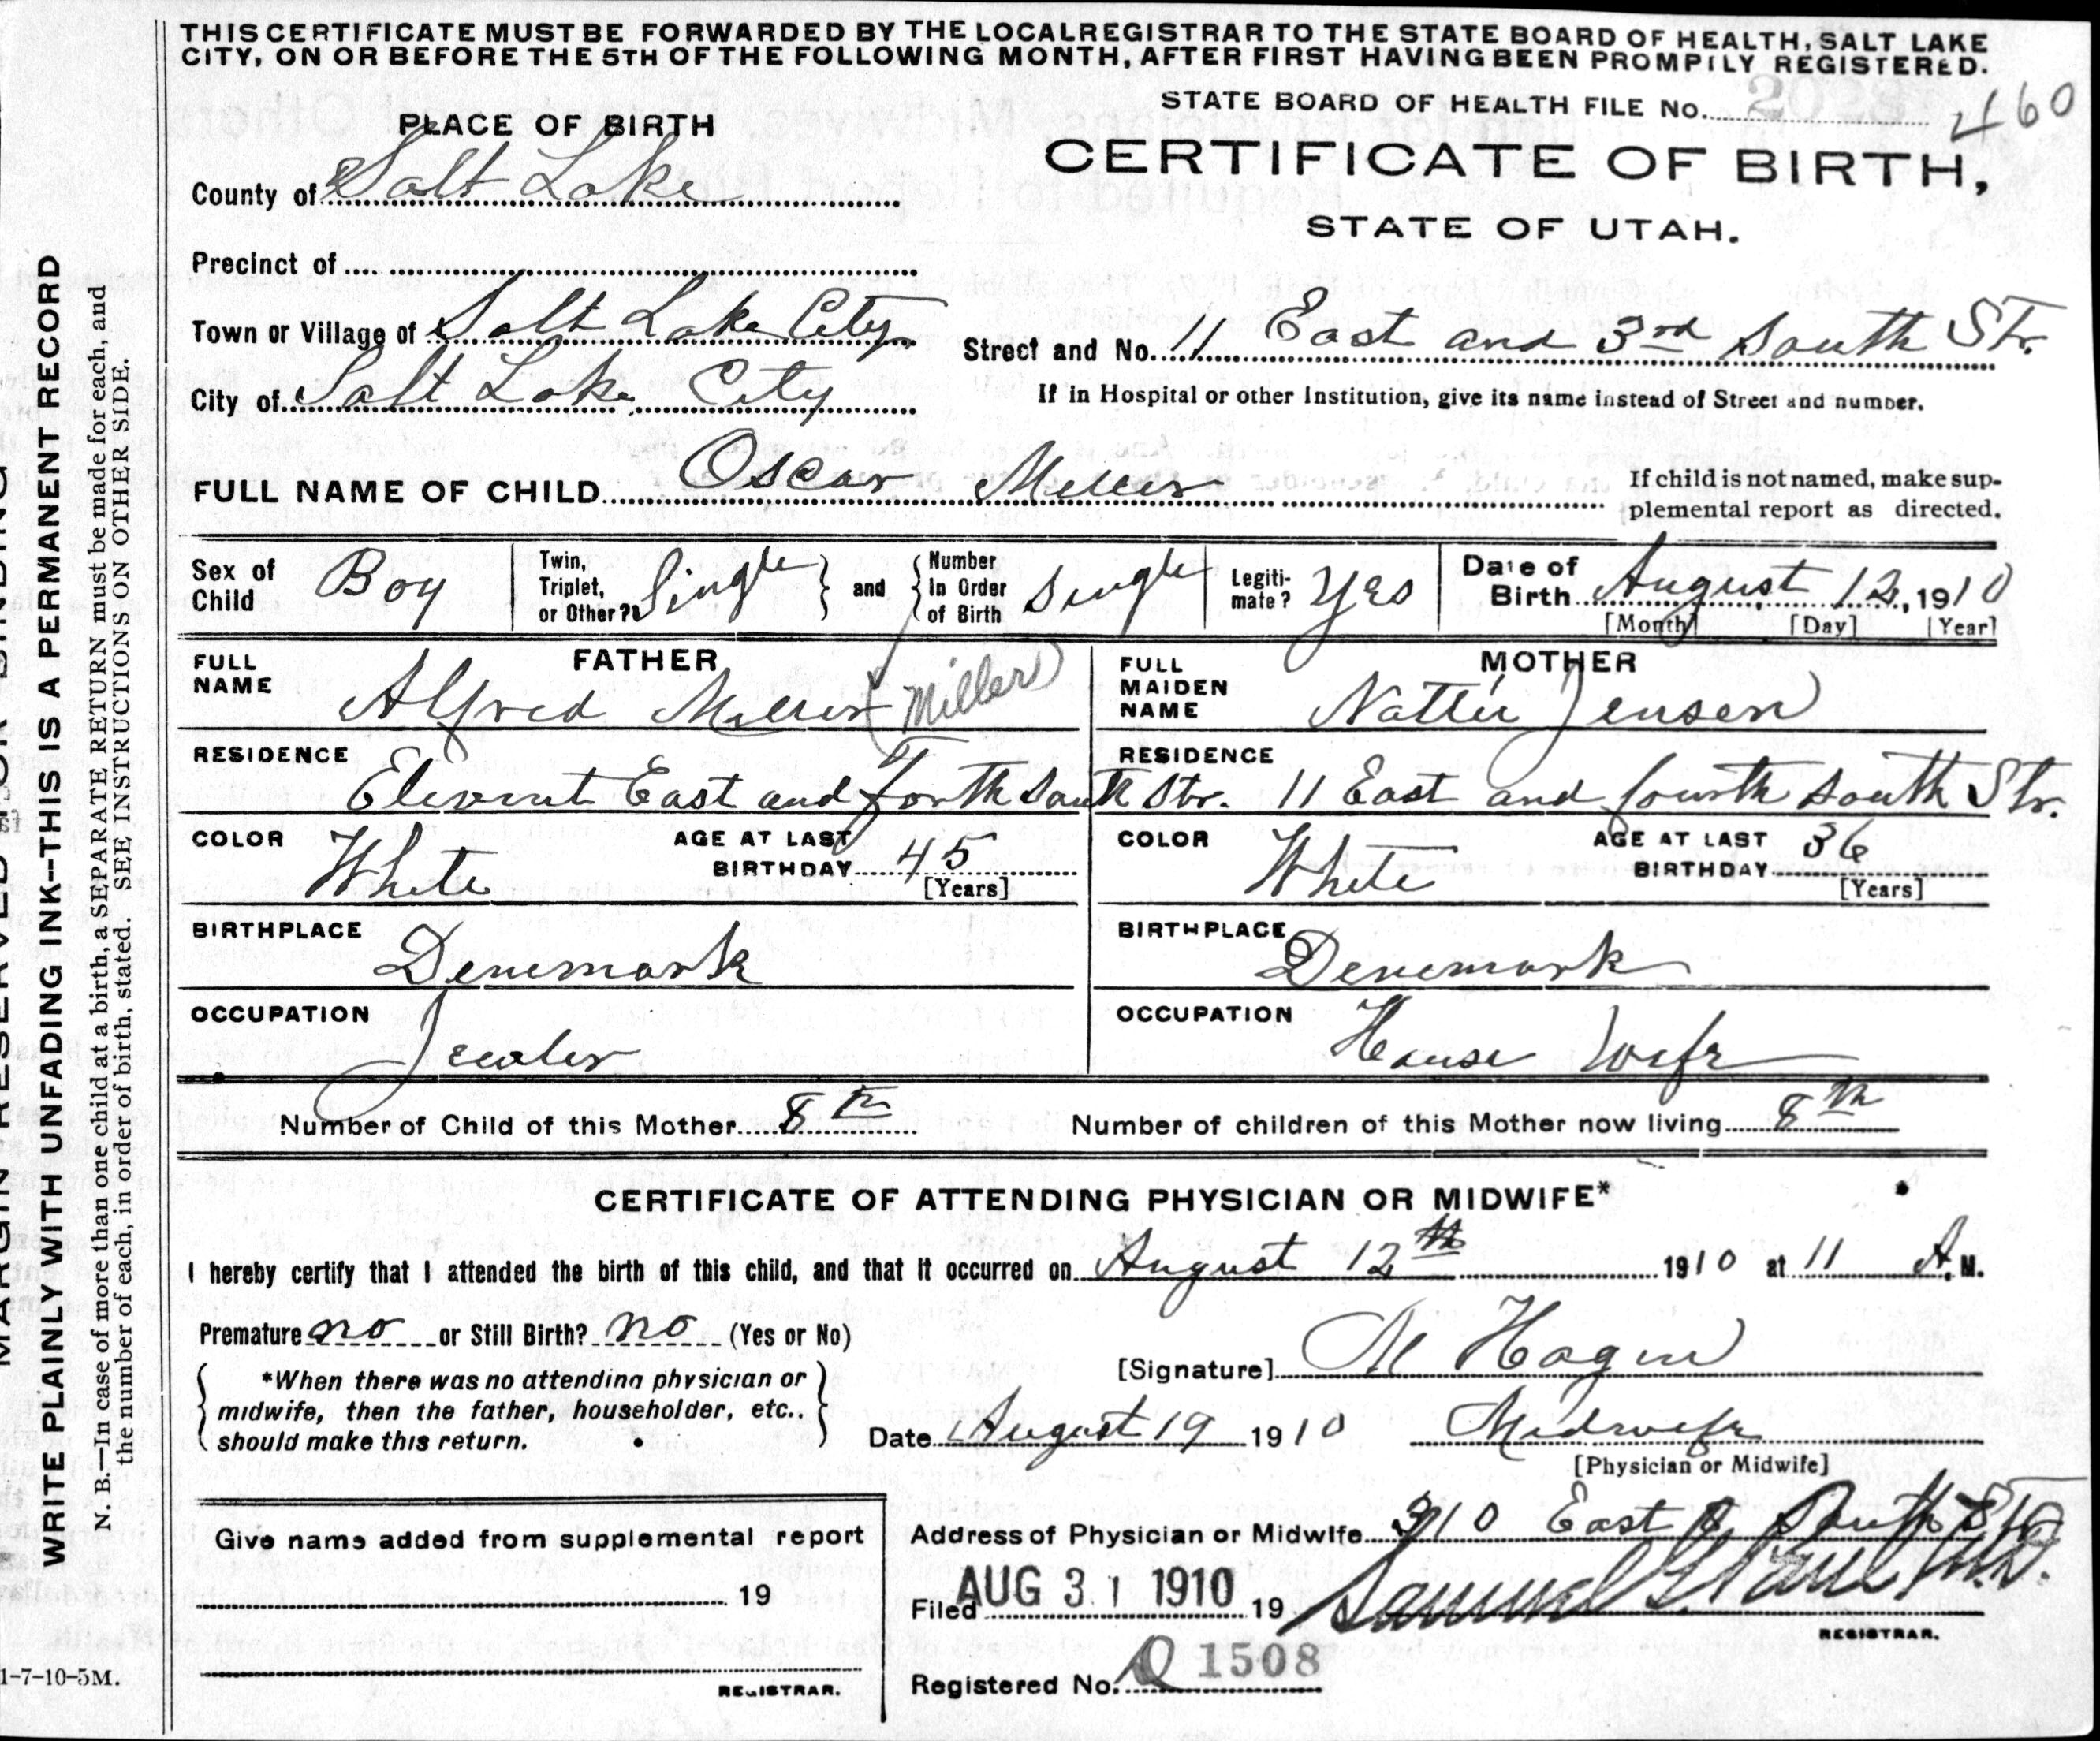 THIS CERTIFICATE MUST BE FORWARDED BY THE LOCAL REGISTRAR TO THE STATE BOARD OF HEALTH, SALT LAKE
CITY, ON OR BEFORE THE 5TH OF THE FOLLOWING MONTH, AFTER FIRST HAVING BEEN PROMPTLY REGISTERED.
STATE BOARD OF HEALTH FILE No. 460
PLACE OF BIRTH
CERTIFICATE OF BIRTH,
STATE OF UTAH.
County of Salt Lake
Precinct of
Town or Village of Salt Lake City
Street and No. 11 East and 3rd South Str.
City of Salt Lake City
If in Hospital or other Institution, give its name instead of Street and number.
FULL NAME OF CHILD Oscar
If child is not named, make sup-
plemental report as directed.
Sex of Child Boy
Twin, Triplet, or Other? Single
and
Number In Order of Birth Single
Legiti-mate? Yes
Date of Birth August 12, 1910
[Month] [Day] [Year]
FATHER
FULL NAME Alfred (Miller)
MOTHER
FULL MAIDEN NAME Jensen
RESIDENCE East and forth South Str.
RESIDENCE 11 East and fourth South Str.
COLOR White
AGE AT LAST BIRTHDAY 45
[Years]
COLOR White
AGE AT LAST BIRTHDAY 36
[Years]
BIRTHPLACE Denemark
BIRTHPLACE Denemark
OCCUPATION Jeweler
OCCUPATION House Wife
Number of Child of this Mother 8th
Number of children of this Mother now living 8th
CERTIFICATE OF ATTENDING PHYSICIAN OR MIDWIFE*
I hereby certify that I attended the birth of this child, and that it occurred on August 12th 1910 at 11 A. M.
Premature no or Still Birth? no (Yes or No)
[Signature] M Hagen
*When there was no attending physician or
midwife, then the father, householder, etc.,
should make this return.
Date August 19 1910 Midwife
[Physician or Midwife]
Address of Physician or Midwife 310 East South
Give name added from supplemental report
19
REGISTRAR.
Filed AUG 31 1910 19 Samuel G. Paul M.D.
REGISTRAR.
Registered No. 1508
MARGIN RESERVED FOR BINDING
WRITE PLAINLY WITH UNFADING INK--THIS IS A PERMANENT RECORD
N. B.—In case of more than one child at a birth, a SEPARATE RETURN must be made for each, and
the number of each, in order of birth, stated. SEE INSTRUCTIONS ON OTHER SIDE.
1-7-10-5M.